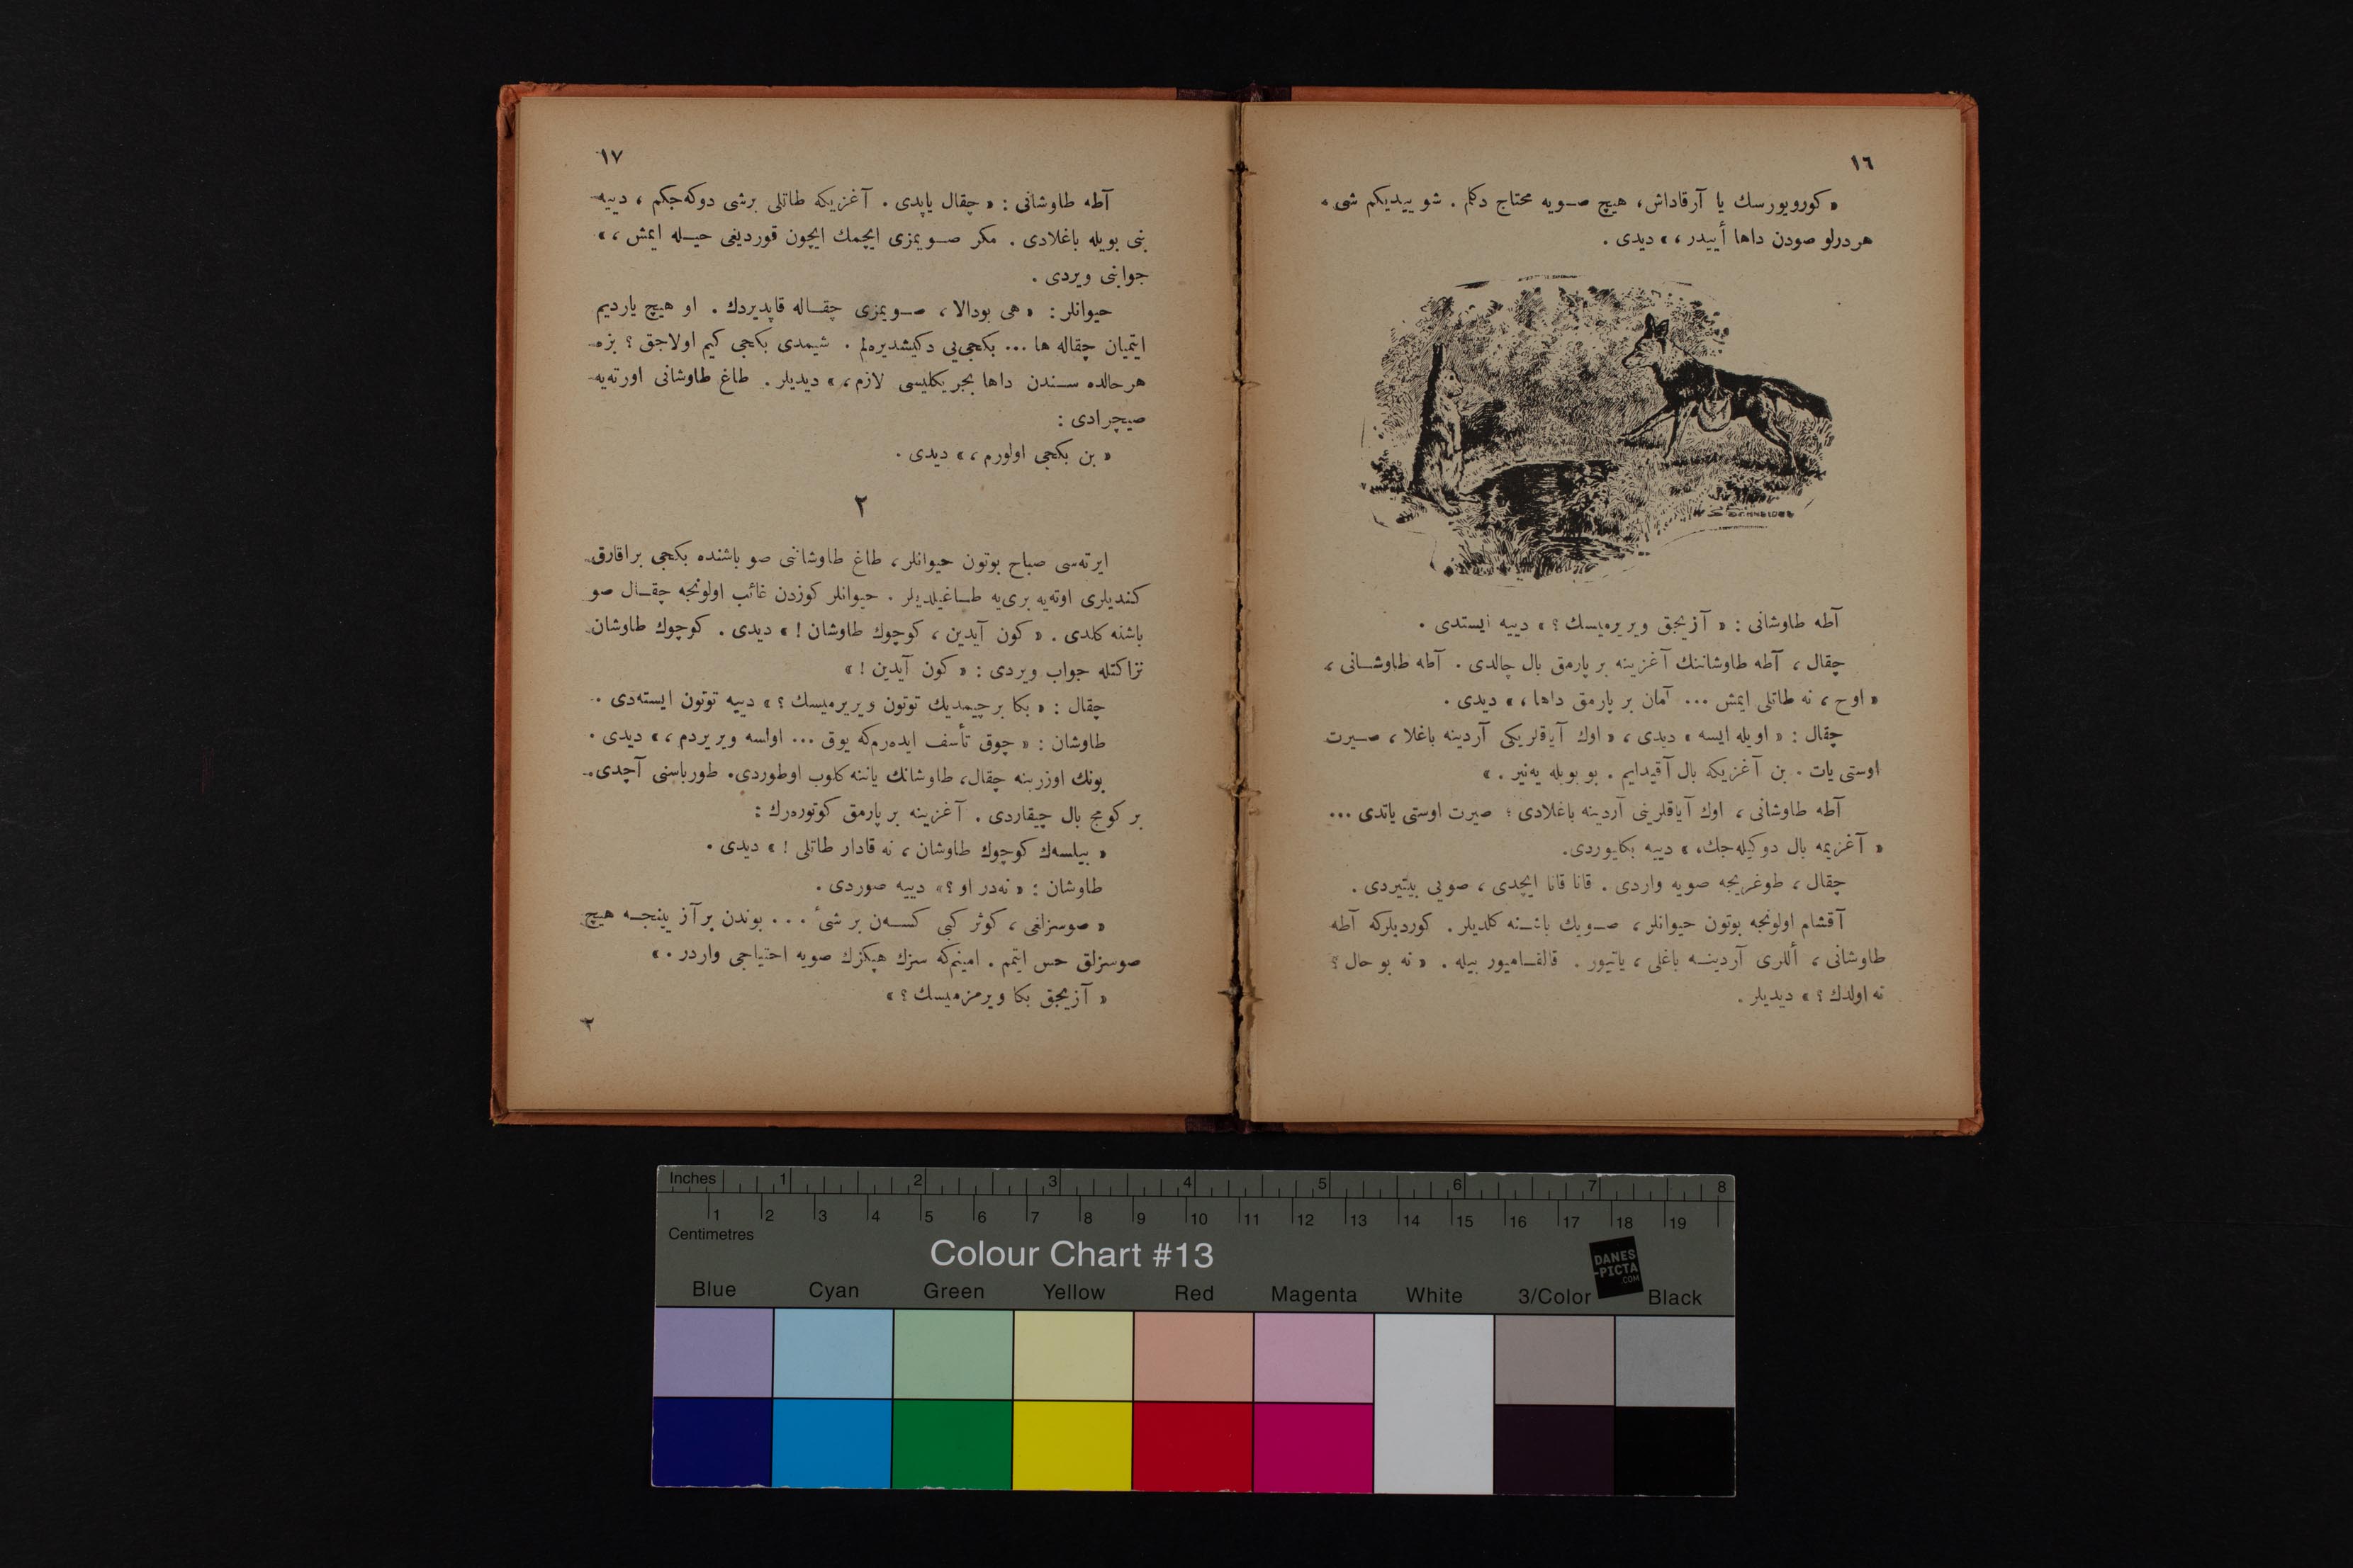 ١٦
« كورويورسك يا آرقاداش، هيچ صويه محتاج دكلم . شو ييديكم شى
هردرلو صودن داها أييدر ، » ديدى .
آطه طاوشانى : « آزيجق ويريرميسك ؟ » دييه ايستدى .
چقال ، آطه طاوشاننك آغزينه بر پارمق بال چالدى . آطه طاوشانى ،
« اوح ، نه طاتلى ايمش ... آمان بر پارمق داها ، » ديدى .
چقال : « اويله ايسه » ديدى ، « اوك آياقلريكى آردينه باغلا ، صيرت
اوستى يات . بن آغزيكه بال آقيدايم . بو بويله يه‌نير . »
آطه طاوشانى ، اوك آياقلرينى آردينه باغلادى ؛ صيرت اوستى ياتدى ...
« آغزيمه بال دوكيله‌جك، » دييه بكليوردى.
چقال ، طوغريجه صويه واردى . قانا قانا ايچدى ، صويى بيتيردى .
آقشام اولونجه بوتون حيوانلر ، صويك باشنه كلديلر . كورديلركه آطه
طاوشانى ، أللرى آردينه باغلى ، ياتيور . قالقاميور بيله . « نه بو حال ؟
نه اولدك ؟ » ديديلر .
١٧
آطه طاوشانى : « چقال ياپدى . آغزيكه طاتلى برشى دوكه‌جكم ، دييه
بنى بويله باغلادى . مكر صويمزى ايچمك ايچون قورديغى حيله ايمش ، »
جوابنى ويردى .
حيوانلر : « هى بودالا ، صويمزى چقاله قاپديردك . او هيچ يارديم
ايتميان چقاله ها ... بكجى‌يى دكيشديره‌لم . شيمدى بكجى كيم اولاجق ؟ بزه
هرحالده سندن داها بجريكليسى لازم ، » ديديلر . طاغ طاوشانى اورته‌يه
صيچرادى :
« بن بكجى اولورم ، » ديدى .
٢
ايرته‌سى صباح بوتون حيوانلر ، طاغ طاوشاننى صو باشنده بكجى براقارق
كنديلرى اوته‌يه برى‌يه طاغيلديلر . حيوانلر كوزدن غائب اولونجه چقال صو
باشنه كلدى . « كون آيدين ، كوچوك طاوشان ! » ديدى . كوچوك طاوشان
نزاكتله جواب ويردى : « كون آيدين ! »
چقال : « بكا برچيمديك توتون ويريرميسك ؟ » دييه توتون ايسته‌دى .
طاوشان : « چوق تأسف ايده‌رم‌كه يوق ... اولسه ويريردم ، » ديدى .
بونك اوزرينه چقال، طاوشانك ياننه كلوب اوطوردى. طورباسنى آچدى.
بر كومج بال چيقاردى . آغزينه بر پارمق كوتوره‌رك :
« بيلسه‌ك كوچوك طاوشان ، نه قادار طاتلى ! » ديدى .
طاوشان : « نه‌در او ؟ » دييه صوردى .
« صوسزلغى ، كوثر كبى كسه‌ن بر شئ ... بوندن برآز يينجه هيچ
صوسزلق حس ايتمم . امينم‌كه سزك هپكزك صويه احتياجى واردر . »
« آزيجق بكا ويرمزميسك ؟ »
٢
Inches 1 2 3 4 5 6 7 8
1 2 3 4 5 6 7 8 9 10 11 12 13 14 15 16 17 18 19
Centimetres
Colour Chart #13
DANES
-PICTA
.COM
Blue Cyan Green Yellow Red Magenta White 3/Color Black